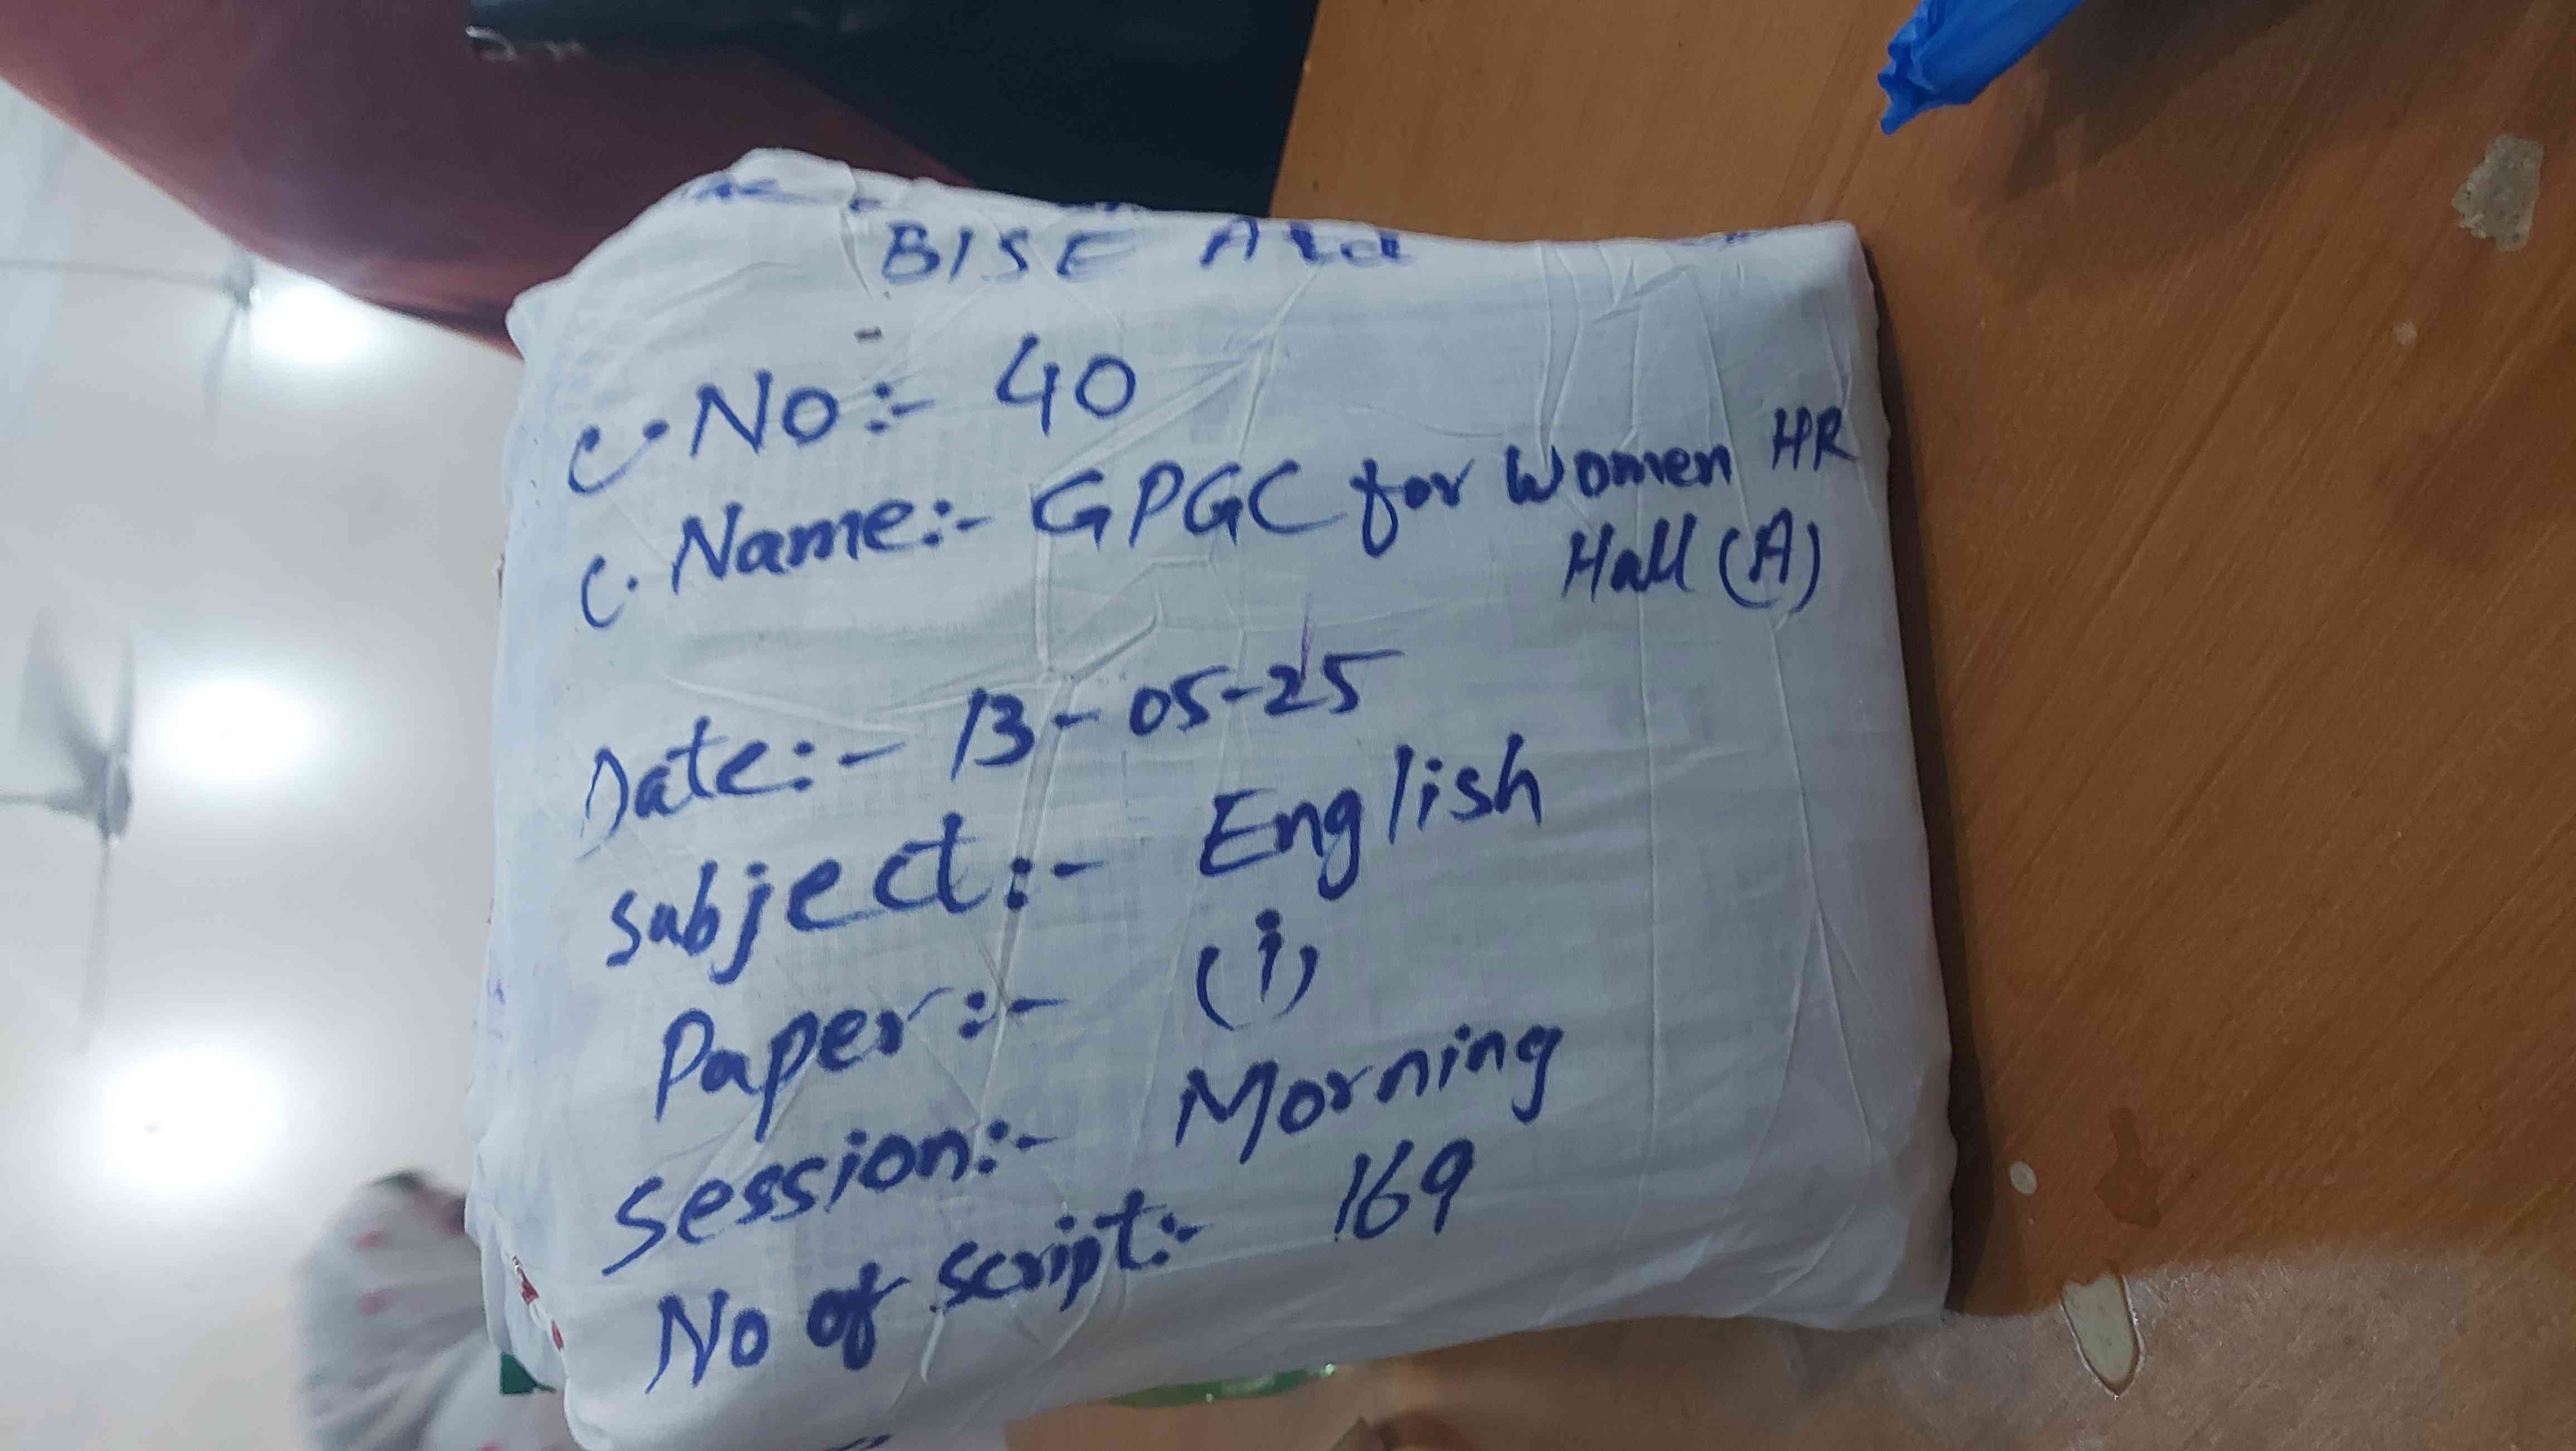 BISE Atd
C. No:- 40
C. Name:- GPGC for Women HR
Hall (A)
Date:- 13-05-25
Subject:- English
Paper:- (i)
Session:- Morning
No of Script:- 169